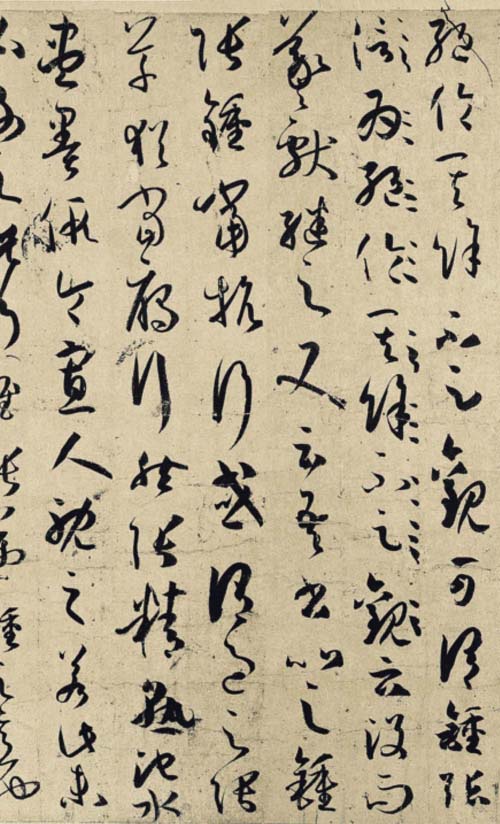 絕倫其餘不足觀可謂鍾張
信為絕倫其餘不足觀云沒而
羲獻繼之又云吾書比之鍾
張鍾當抗行或謂過之張
草猶當雁行然張精熟池水
盡墨假令寡人耽之若此未
必謝之此乃推張邁鍾之意也